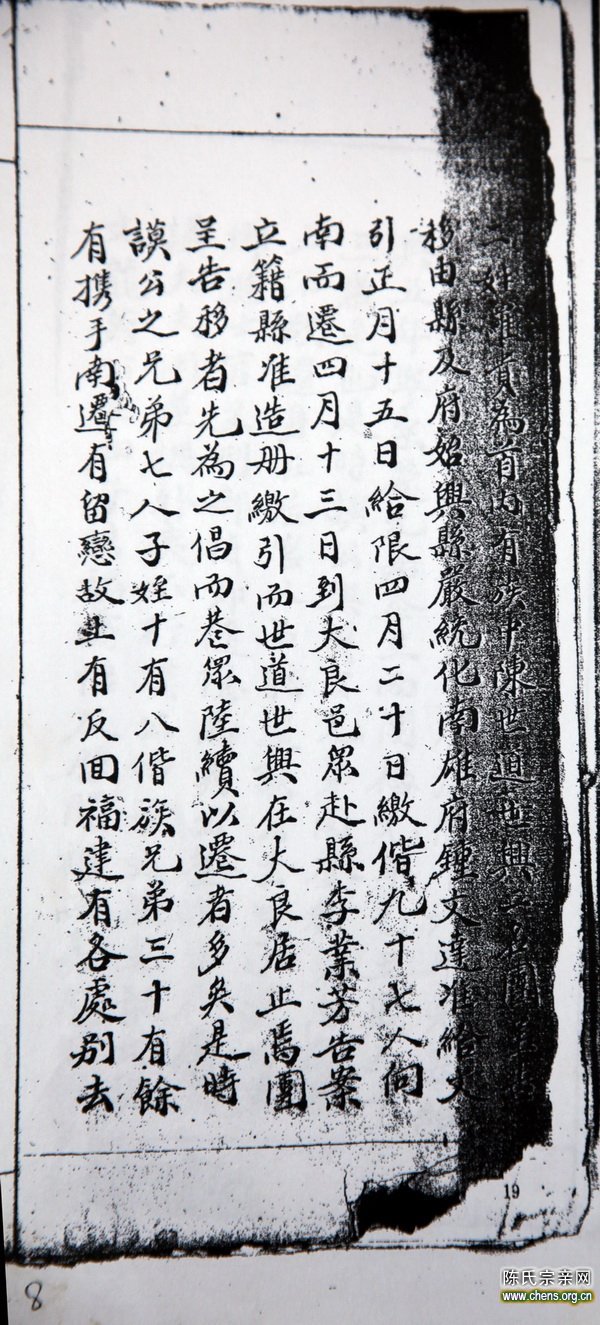 二姓羅貴為首內有族中陳世道世興二名團
移由縣及府始興縣嚴統化南雄府鍾文達准給文
引正月十五日給限四月二十日繳偕九十七人向
南而遷四月十三日到大良邑眾赴縣李業芳告案
立籍縣准造册繳引而世道世興在大良居止焉團
呈告移者先為之倡而巷眾陸續以遷者多矣是時
謨公之兄弟七人子姪十有八偕族兄弟三十有餘
有携手南遷有留戀故土有反回福建有各處别去
19
8
陈氏宗亲网
www.chens.org.cn